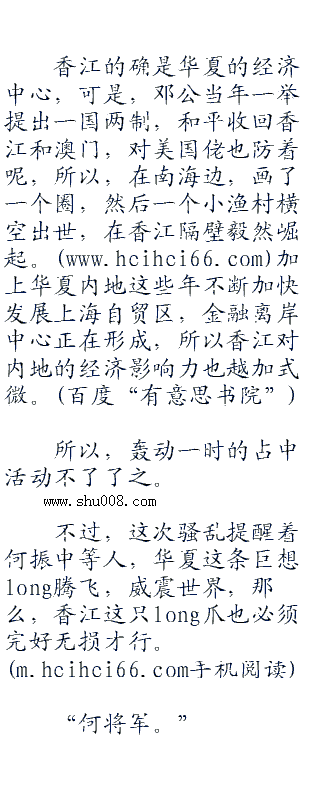 香江的确是华夏的经济
中心，可是，邓公当年一举
提出一国两制，和平收回香
江和澳门，对美国佬也防着
呢，所以，在南海边，画了
一个圈，然后一个小渔村横
空出世，在香江隔壁毅然崛
起。(www.hcihci66.com)加
上华夏内地这些年不断加快
发展上海自贸区，金融离岸
中心正在形成，所以香江对
内地的经济影响力也越加式
微。(百度“有意思书院”)
所以，轰动一时的占中
活动不了了之。
www.shu008.com
不过，这次骚乱提醒着
何振中等人，华夏这条巨想
long腾飞，威震世界，那
么，香江这只long爪也必须
完好无损才行。
(m.hcihci66.com手机阅读)
“何将军。”